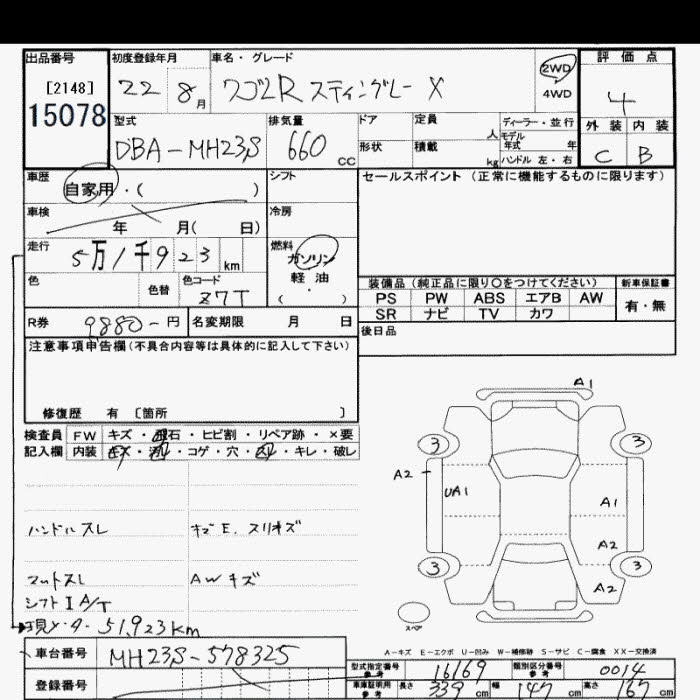 出品番号 初度登録年月 車名・グレード 評価点
[2148] 22 8月 ワゴンR スティングレー X 2WD 4
15078 4WD
型式 排気量 ドア 定員 人 ディーラー・並行 外装 内装
DBA-MH23S 660 cc 形状 積載 kg モデル年式 年 C B
ハンドル 左・右
車歴 自家用・( ) シフト セールスポイント (正常に機能するものに限ります)
車検 年 月( 日) 冷房
走行 5万1千923km 燃料 ガソリン
軽油
・
( )
色 色替 色コード Z7T 装備品 (純正品に限り○をつけてください) 新車保証書
PS PW ABS エアB AW 有・無
SR ナビ TV カワ
R券 9880-円 名変期限 月 日 後日品
注意事項申告欄(不具合内容等は具体的に記入して下さい)
修復歴 有 [箇所 ]
検査員 FW キズ・飛石・ヒビ割・リペア跡・×要
記入欄 内装 キズ・汚レ・コゲ・穴・スレ・キレ・破レ
A1
3 3
A2 UA1 A1
A2
3 3
A2
スペア
ハンドルスレ キズE. スリキズ
マットスレ AWキズ
シフトIA/T
現メータ-51,923km
A-キズ E-エクボ U-凹み W-補修跡 S-サビ C-腐食 XX-交換済
車台番号 MH23S-578325
型式指定番号 参考 16169 類別区分番号 参考 0014
登録番号 車庫証明用 参考 長さ 339cm 幅 147cm 高さ 167cm